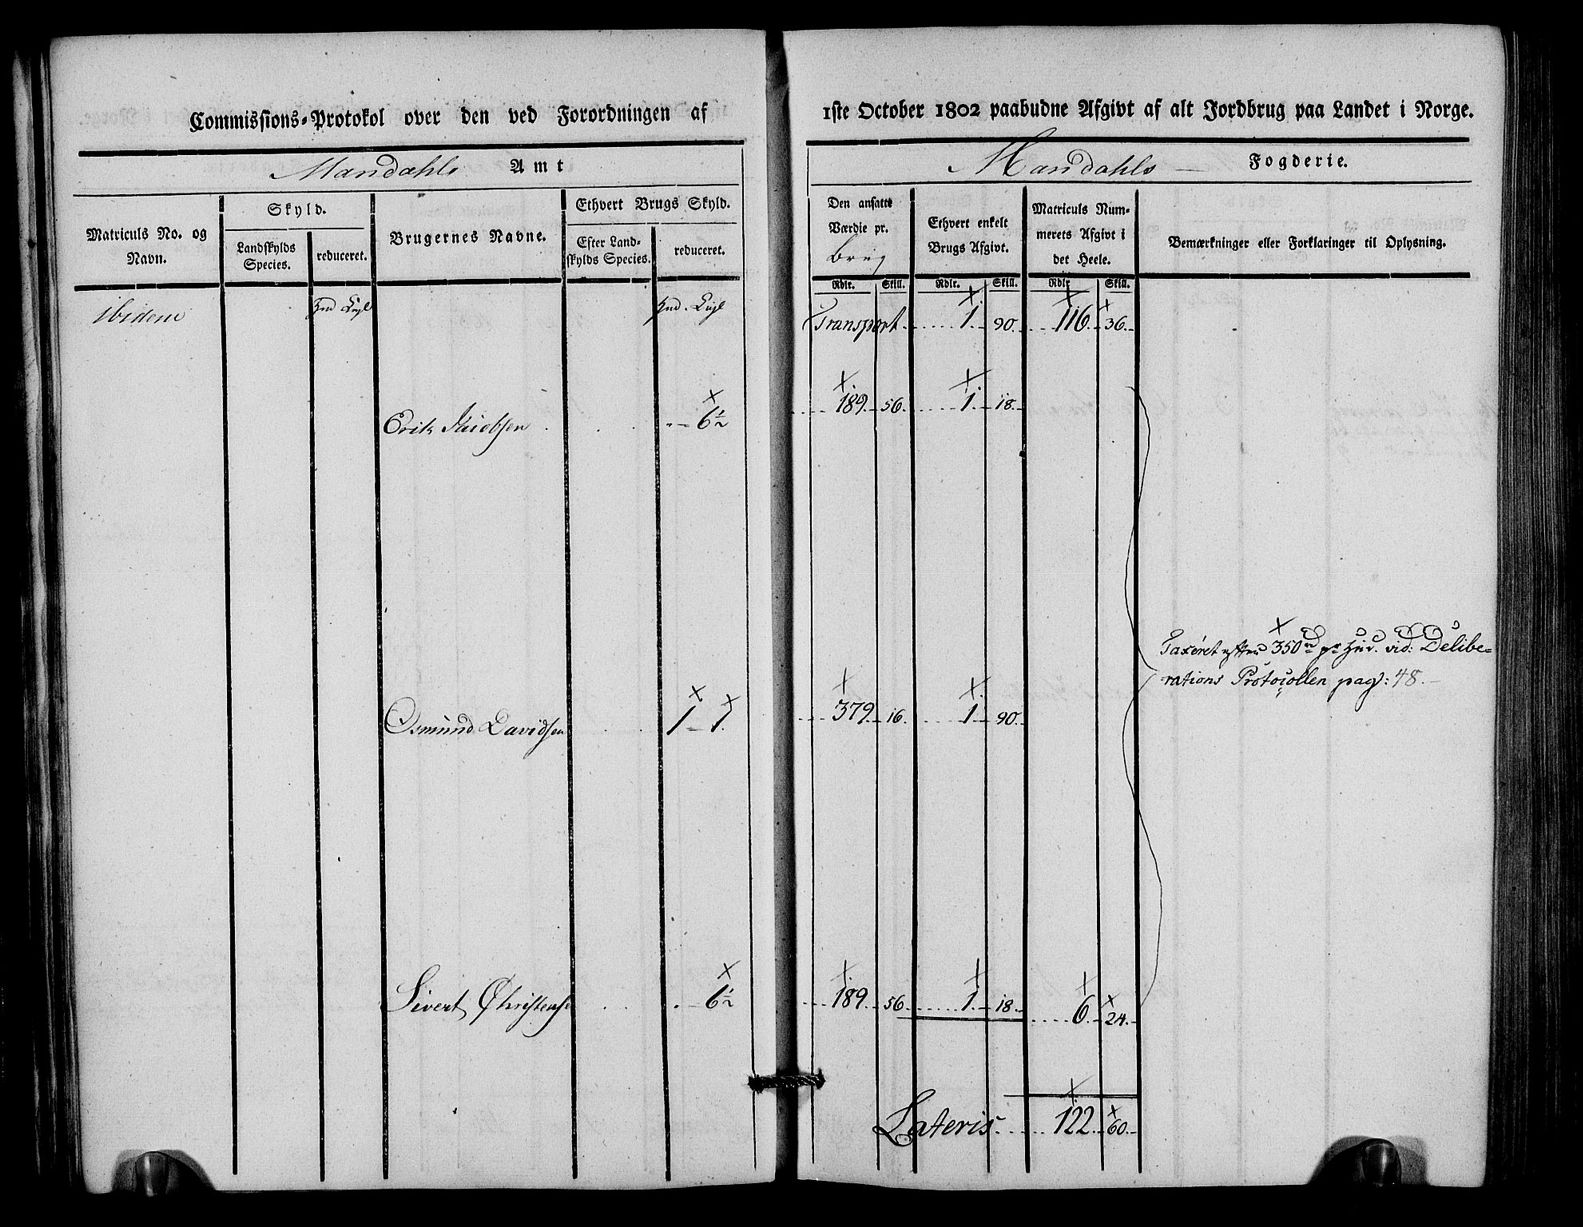 Commissions-Protokol over den ved Forordningen af
Mandahls Amt
Matriculs No. og Navn.
Skyld.
Landskylds Species.
reduceret.
Brugernes Navne.
Ethvert Brugs Skyld.
Efter Landskylds Species.
reduceret.
ibidem
Erik Jacobsen 6½
Osmund Davidsen 1 - 1.
Sivert Christens 6½
1ste October 1802 paabudne Afgivt af alt Jordbrug paa Landet i Norge.
Mandahls Fogderie.
Den ansatte Værdie pr. Brug
Ethvert enkelt Brugs Afgivt.
Matriculs Nummerets Afgivt i det Heele.
Bemærkninger eller Forklaringer til Oplysning.
Rdlr. Skill. Rdlr. Skill. Rdlr. Skill.
Transport 1 90 116 36
189 56 1 18
Taxeret efter 350 rd pr Hud. vid: Delibe-
rations Protocollen pag: 48.
379 16 1 90
189 56 1 18 6 24
Lateris 122 60